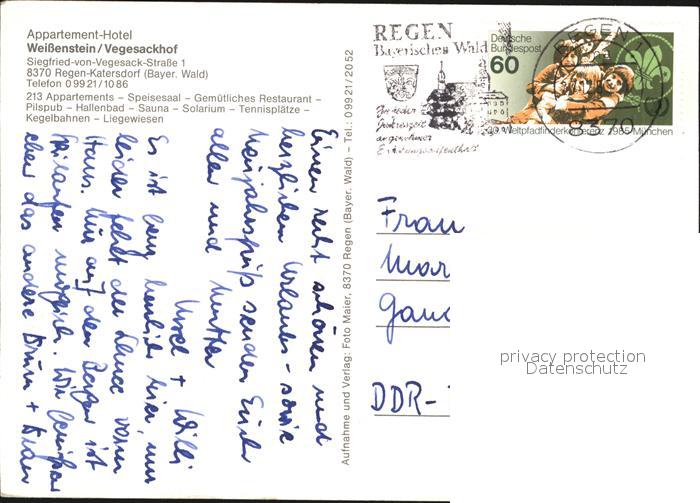 Appartement-Hotel
Weißenstein/Vegesackhof
Siegfried-von-Vegesack-Straße 1
8370 Regen-Katersdorf (Bayer. Wald)
Telefon 09921/1086
213 Appartements – Speisesaal – Gemütliches Restaurant –
Pilspub – Hallenbad – Sauna – Solarium – Tennisplätze –
Kegelbahnen – Liegewiesen
Einen recht schönen und
herzlichen Urlaubs- sowie
Neujahrsgruß senden Euch
allen und Mutter
Ursel + Willi
Es ist ganz herrlich hier, nur
leider fehlt der Schnee vorm
Haus. Nur auf den Bergen ist
Skilaufen möglich. Wir genießen
aber das andere Drum + Dran
Aufnahme und Verlag: Foto Maier, 8370 Regen (Bayer. Wald) – Tel.: 09921/2052
REGEN
Bayerischer Wald
Zu jeder
Jahreszeit
angenehmer
Deutsche
Bundespost
60
Weltpfadfinderkonferenz 1985 München
REGEN 1
8370
Frau
Mar
Gan
DDR-
privacy protection
Datenschutz